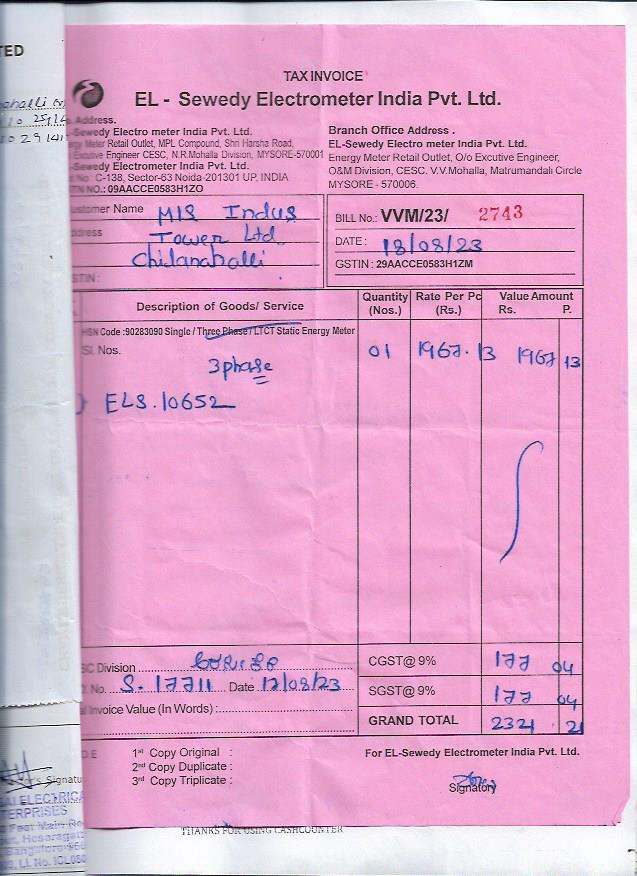 TED
TAX INVOICE
EL - Sewedy Electrometer India Pvt. Ltd.
Address.
-Sewedy Electro meter India Pvt. Ltd.
Meter Retail Outlet, MPL Compound, Shri Harsha Road,
Engineer CESC, N.R.Mohalla Division, MYSORE-570001
-Sewedy Electrometer India Pvt. Ltd.
C-138, Sector-63 Noida-201301 UP, INDIA
NO.: 09AACCE0583H1ZO
Branch Office Address .
EL-Sewedy Electro meter India Pvt. Ltd.
Energy Meter Retail Outlet, O/o Excutive Engineer,
O&M Division, CESC. V.V.Mohalla, Matrumandali Circle
MYSORE - 570006.
ustomer Name M/S Indus
dress Tower Ltd.
Chidanahalli
STIN:
BILL No.: VVM/23/ 2743
DATE: 18/08/23
GSTIN : 29AACCE0583H1ZM
Description of Goods/ Service
Quantity (Nos.)
Rate Per Pc (Rs.)
Value Amount
Rs. P.
HSN Code :90283090 Single / Three Phase / LTCT Static Energy Meter
Sl. Nos.
3 phase
01 1967.13 1967 13
ELS.10652
SC Division
No. S. 17711 Date 17/08/23
Invoice Value (In Words) :
CGST@ 9% 177 04
SGST@ 9% 177 04
GRAND TOTAL 2321 . 21
1st Copy Original :
2nd Copy Duplicate :
3rd Copy Triplicate :
For EL-Sewedy Electrometer India Pvt. Ltd.
Signatory
THANKS FOR USING CASHCOUNTER